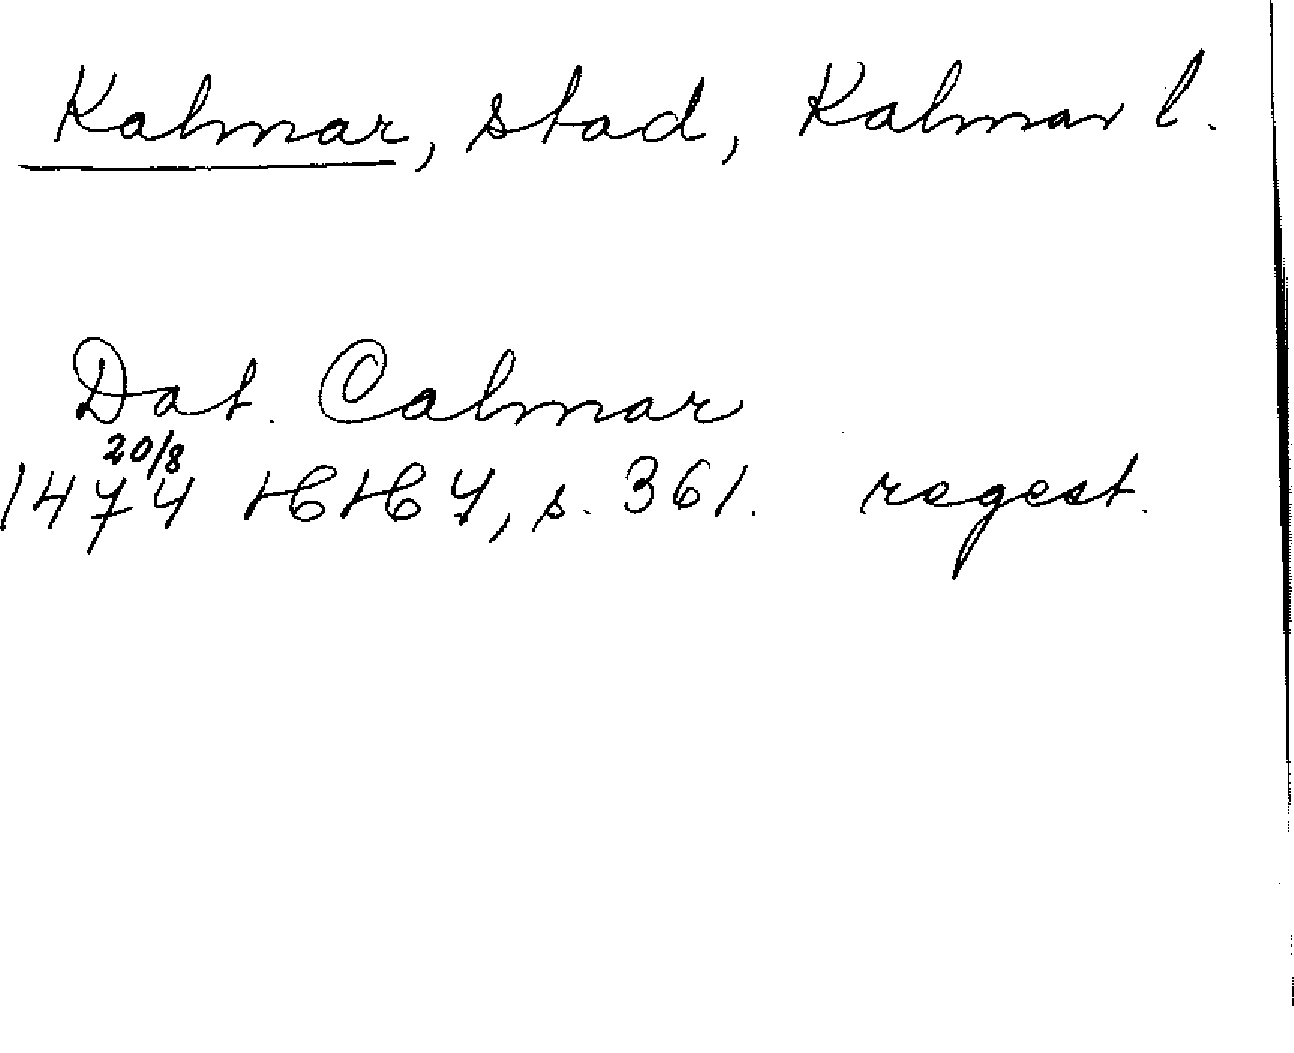 Kalmar, stad, Kalmar l.
Dat. Calmar
20/8
1474 HH 4, s. 361. regest.